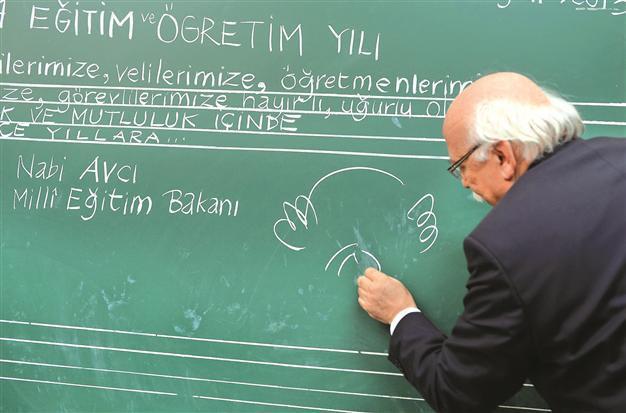 EĞİTİM ve ÖĞRETİM YILI
velilerimize, öğretmenlerimi
görevlilerimize hayırlı, uğurlu
VE MUTLULUK İÇİNDE
YILLARA...
Nabi AVCI
Millî Eğitim Bakanı